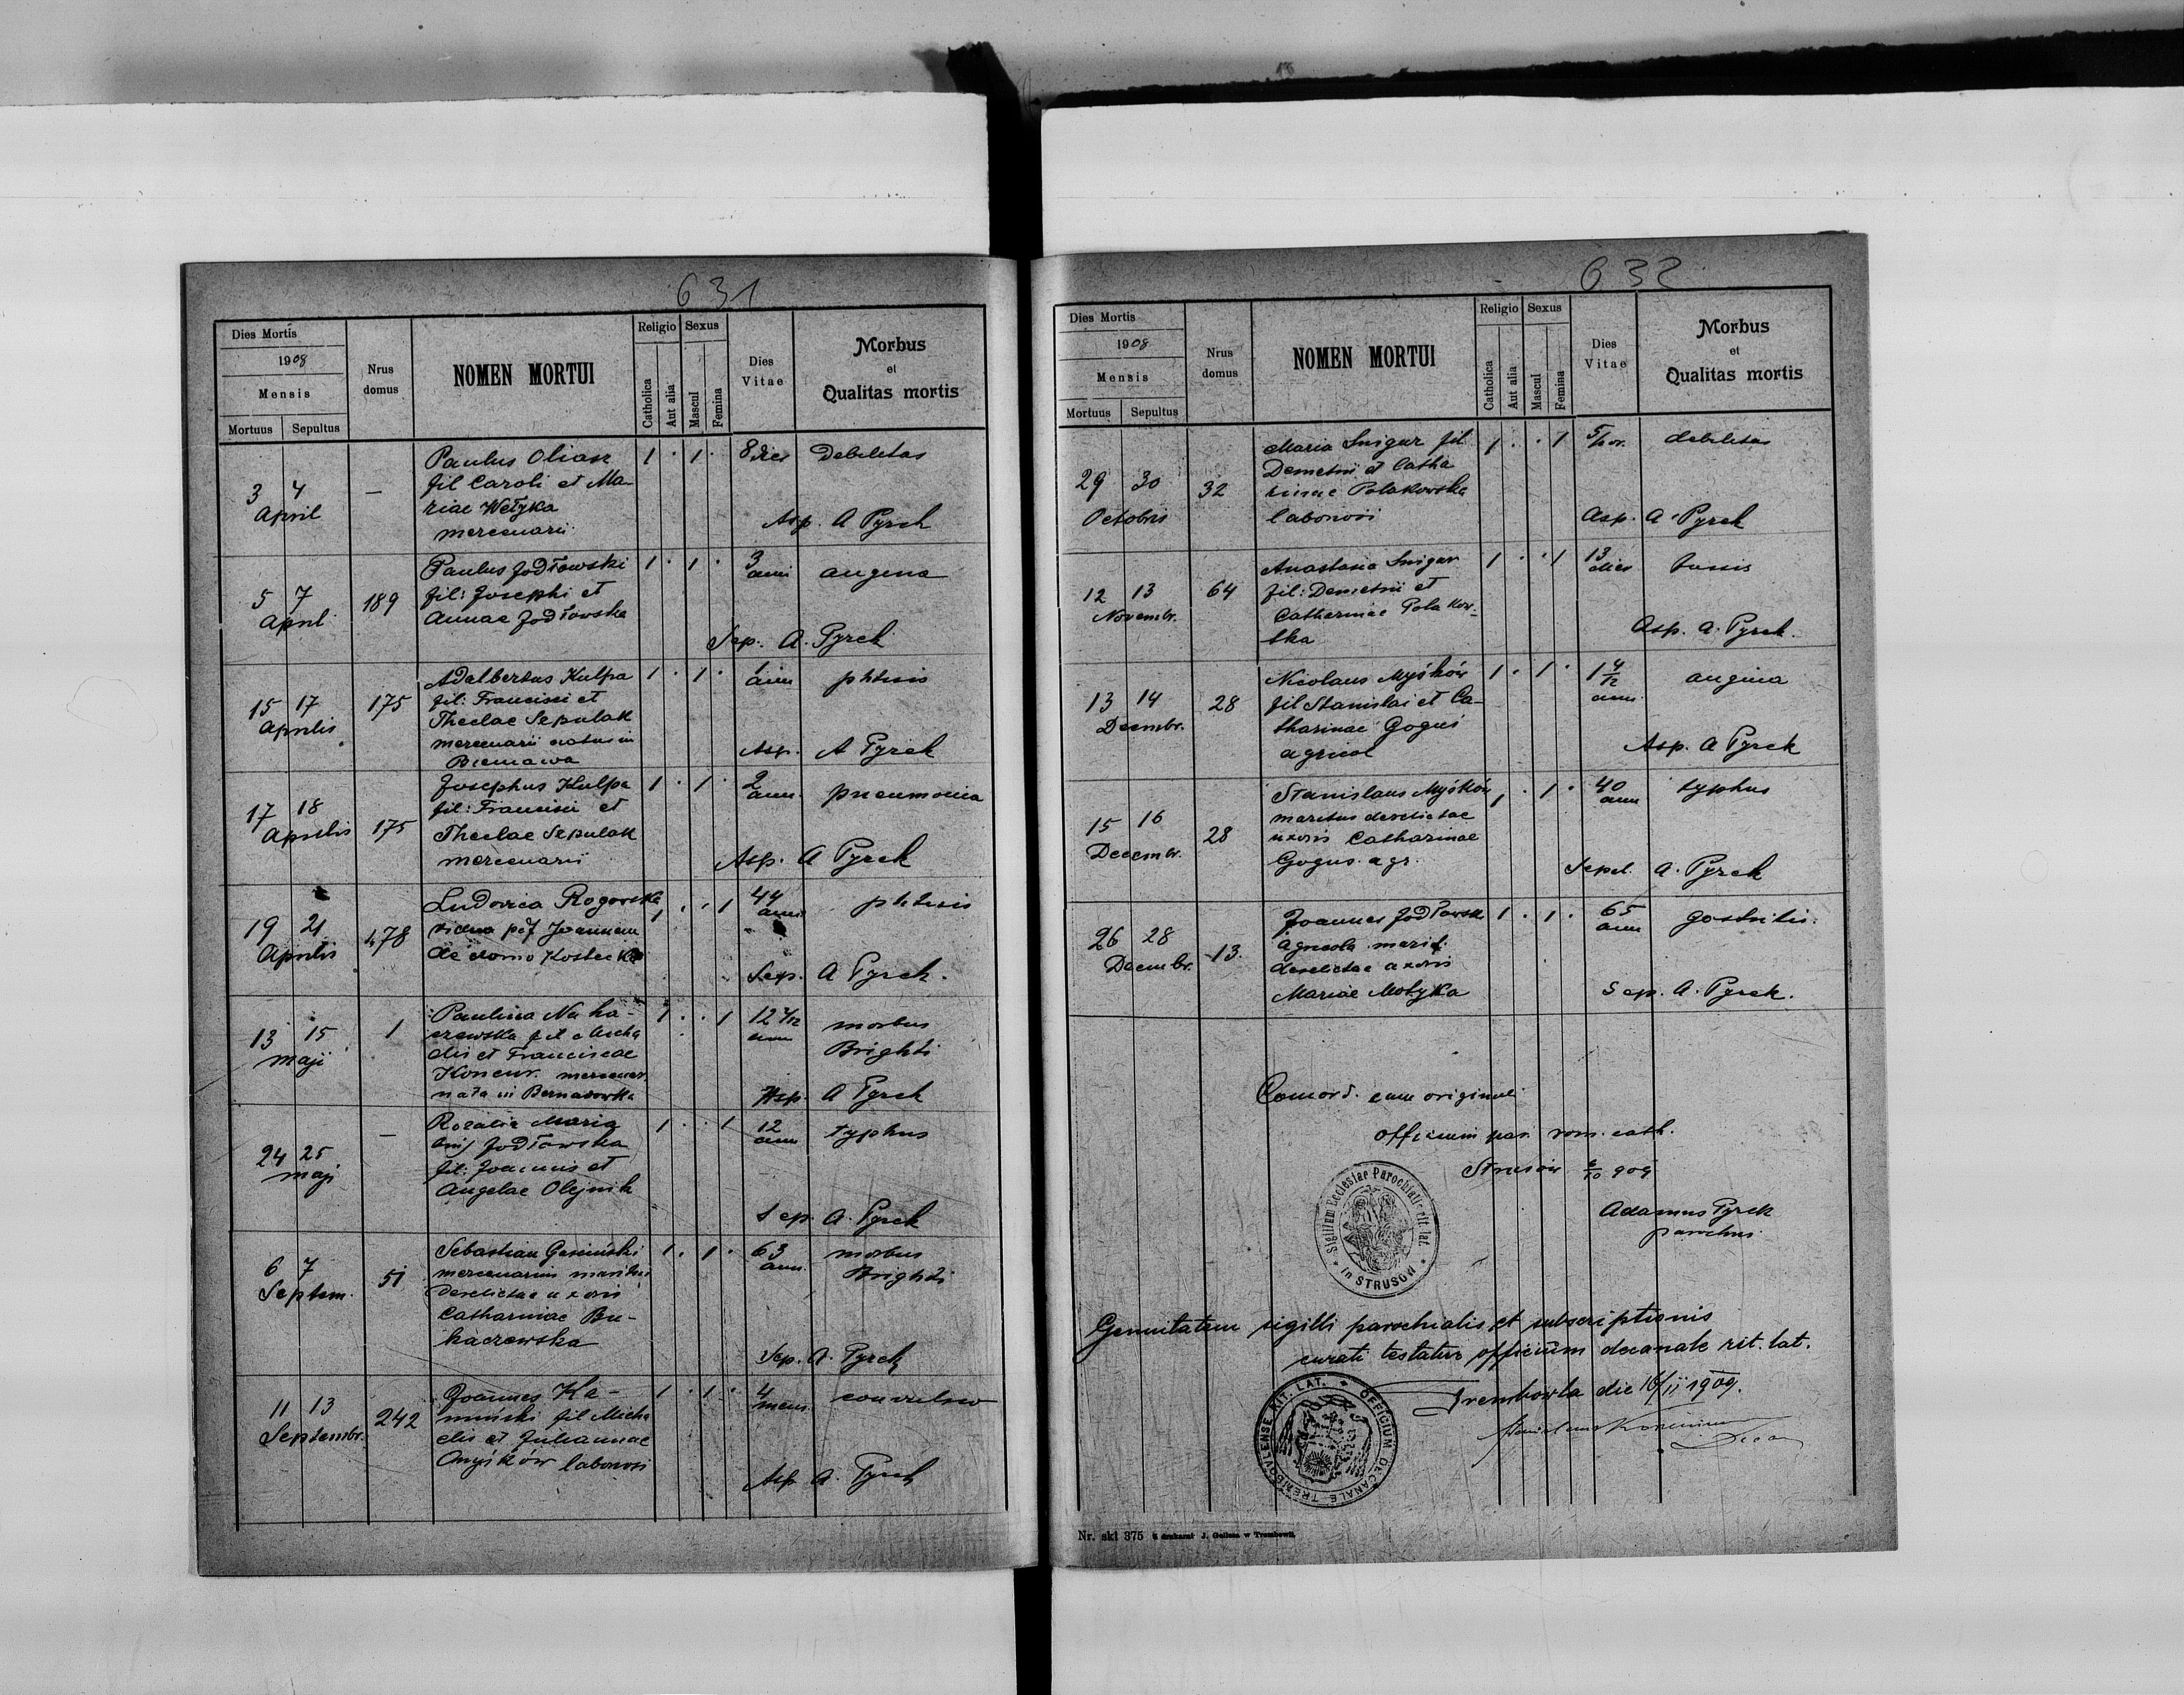 631
Dies Mortis
1908
Mensis
Mortuus Sepultus
Nrus domus
NOMEN MORTUI
Religio Sexus
Catholica
Aut alia
Mascul
Femina
Dies Vitae
Morbus
et
Qualitas mortis
Paulus Olian 1 . 1 . 8 dies Debilitas
3 4 — fil Caroli et Ma-
April riae Wełyka
mercenarii Asp. A Pyrek
Paulus Jodłowski 1 . 1 . 3 anni angina
5 7 189 fil: Josephi et
April Annae Jodłowska
Sep. A. Pyrek
Adalbertus Kulpa 1 . 1 . anni phtisis
15 17 175 fil: Francisci et
Aprilis Theclae Sekulak
mercenarii natus in
Asp. A Pyrek
Josephus Kulpa 1 . 1 . 2 ann. pneumonia
17 18 175 fil: Francisci et
Aprilis Theclae Sekulak
mercenarii Asp. A Pyrek
Ludovica Rogowska 1 . . 1 44 anni phtisis
19 21 478 vidua p{f Joannem
Aprilis de domo Kostecka
Sep. A Pyrek.
Paulina Nuha- 1 . . 1 12 ann morbus
13 15 1 czewska fil Micha Brighti
maji elis et Franciscae
Koncur. mercenar.
nata in Bernadowka Asp. A Pyrek
Rozalia Maria 1 . . 1 12 ann typhus
24 25 — Jodłowska
maji fil: Joannis et
Angelae Olejnik
Sep A. Pyrek
Sebastian Gasiński 1 . 1 . 63 ann. morbus
6 7 51 mercenarius maritus Brighti
Septem. derelictae uxoris
Catharinae Bu-
haczewska
Sep. A. Pyrek
Joannes Ka- 1 . 1 . 4 mens. convulsio
11 13 242 miński fil Micha
Septembr. elis et Juliannae
Myśków laboriosi
Asp A. Pyrek
632
Dies Mortis
1908
Mensis
Mortuus Sepultus
Nrus domus
NOMEN MORTUI
Religio Sexus
Catholica
Aut alia
Mascul
Femina
Dies Vitae
Morbus
et
Qualitas mortis
Maria Snigur fil 1 . . 1 debilitas
29 30 32 Demetrii et Catha
Octobris rinae Polakowska
laboriosi Asp. A. Pyrek
Anastasia Snigur 1 . . 1 13 dies tussis
12 13 64 fil: Demetrii et
Novembr. Catharinae Polakow-
ska Asp. A. Pyrek.
Nicolaus Myśków 1 . 1 . 1 4/12 ann. angina
13 14 28 fil Stanislai et Ca-
Decembr. tharinae Goguś
agricol Asp. A Pyrek
Stanislaus Myśków 1 . 1 . 40 ann typhus
15 16 28 maritus derelictae
Decembr. uxoris Catharinae
Gogus. agr. Sepel. A. Pyrek
Joannes Jodłowsk 1 . 1 . 65 ann gastritis.
26 28 13. agricola marit.
Decembr. derelictae uxoris
Mariae Motyka Sep. A. Pyrek.
Concord. cum originali
Officium par. rom. cath.
Strusów 909
Sigillum Ecclesiae Parochialis rit. lat. in STRUSÓW
Adamus Pyrek
parochus
Genuitatem sigilli parochialis et subscriptionis
curati testatur officium decanale rit. lat.
Trembowla die 16/11 1909.
OFFICIUM DECANALE TREMBOVLENSE RIT. LAT.
Nr. skł 375 Z drukarni J. Gellesa w Trembowli.